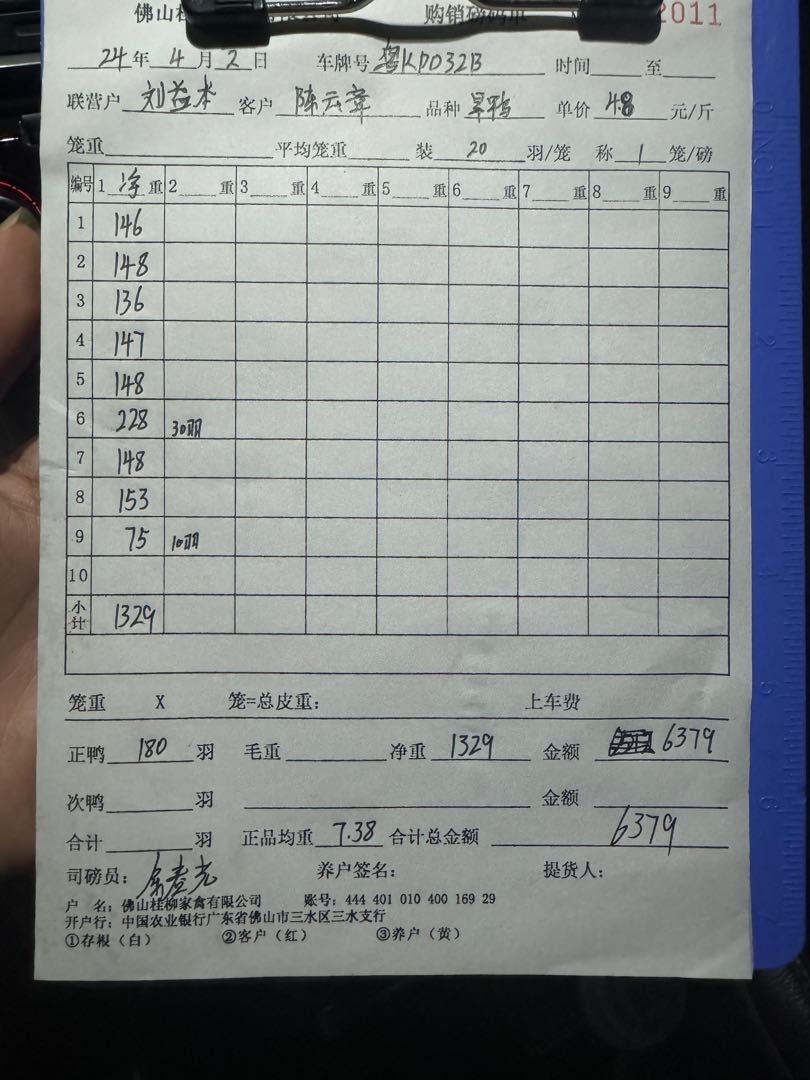 佛山桂 购销磅码单 2011
24年4月2日 车牌号 粤KP032B 时间 至
联营户 刘益本 客户 陈云 品种 旱鸭 单价 4.8 元/斤
笼重 平均笼重 装 20 羽/笼 称 1 笼/磅
编号 1 净 重 2 重 3 重 4 重 5 重 6 重 7 重 8 重 9 重
1 146
2 148
3 136
4 147
5 148
6 228 30羽
7 148
8 153
9 75 10羽
10
小计 1329
笼重 X 笼=总皮重: 上车费
正鸭 180 羽 毛重 净重 1329 金额 6379
次鸭 羽 金额
合计 羽 正品均重 7.38 合计总金额 6379
司磅员: 养户签名: 提货人:
户 名: 佛山桂柳家禽有限公司 账号: 444 401 010 400 169 29
开户行: 中国农业银行广东省佛山市三水区三水支行
①存根(白) ②客户(红) ③养户(黄)